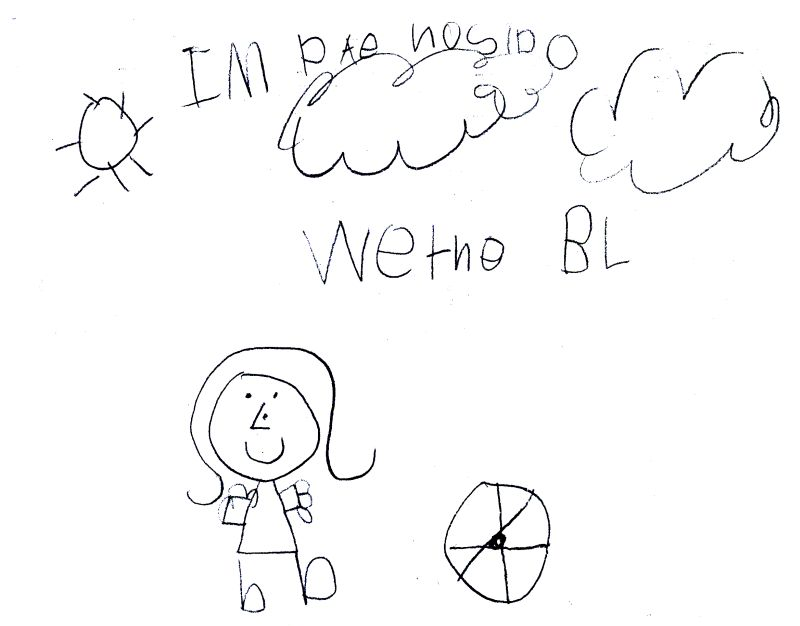 IM PAE NOSIDO
Wethe BL